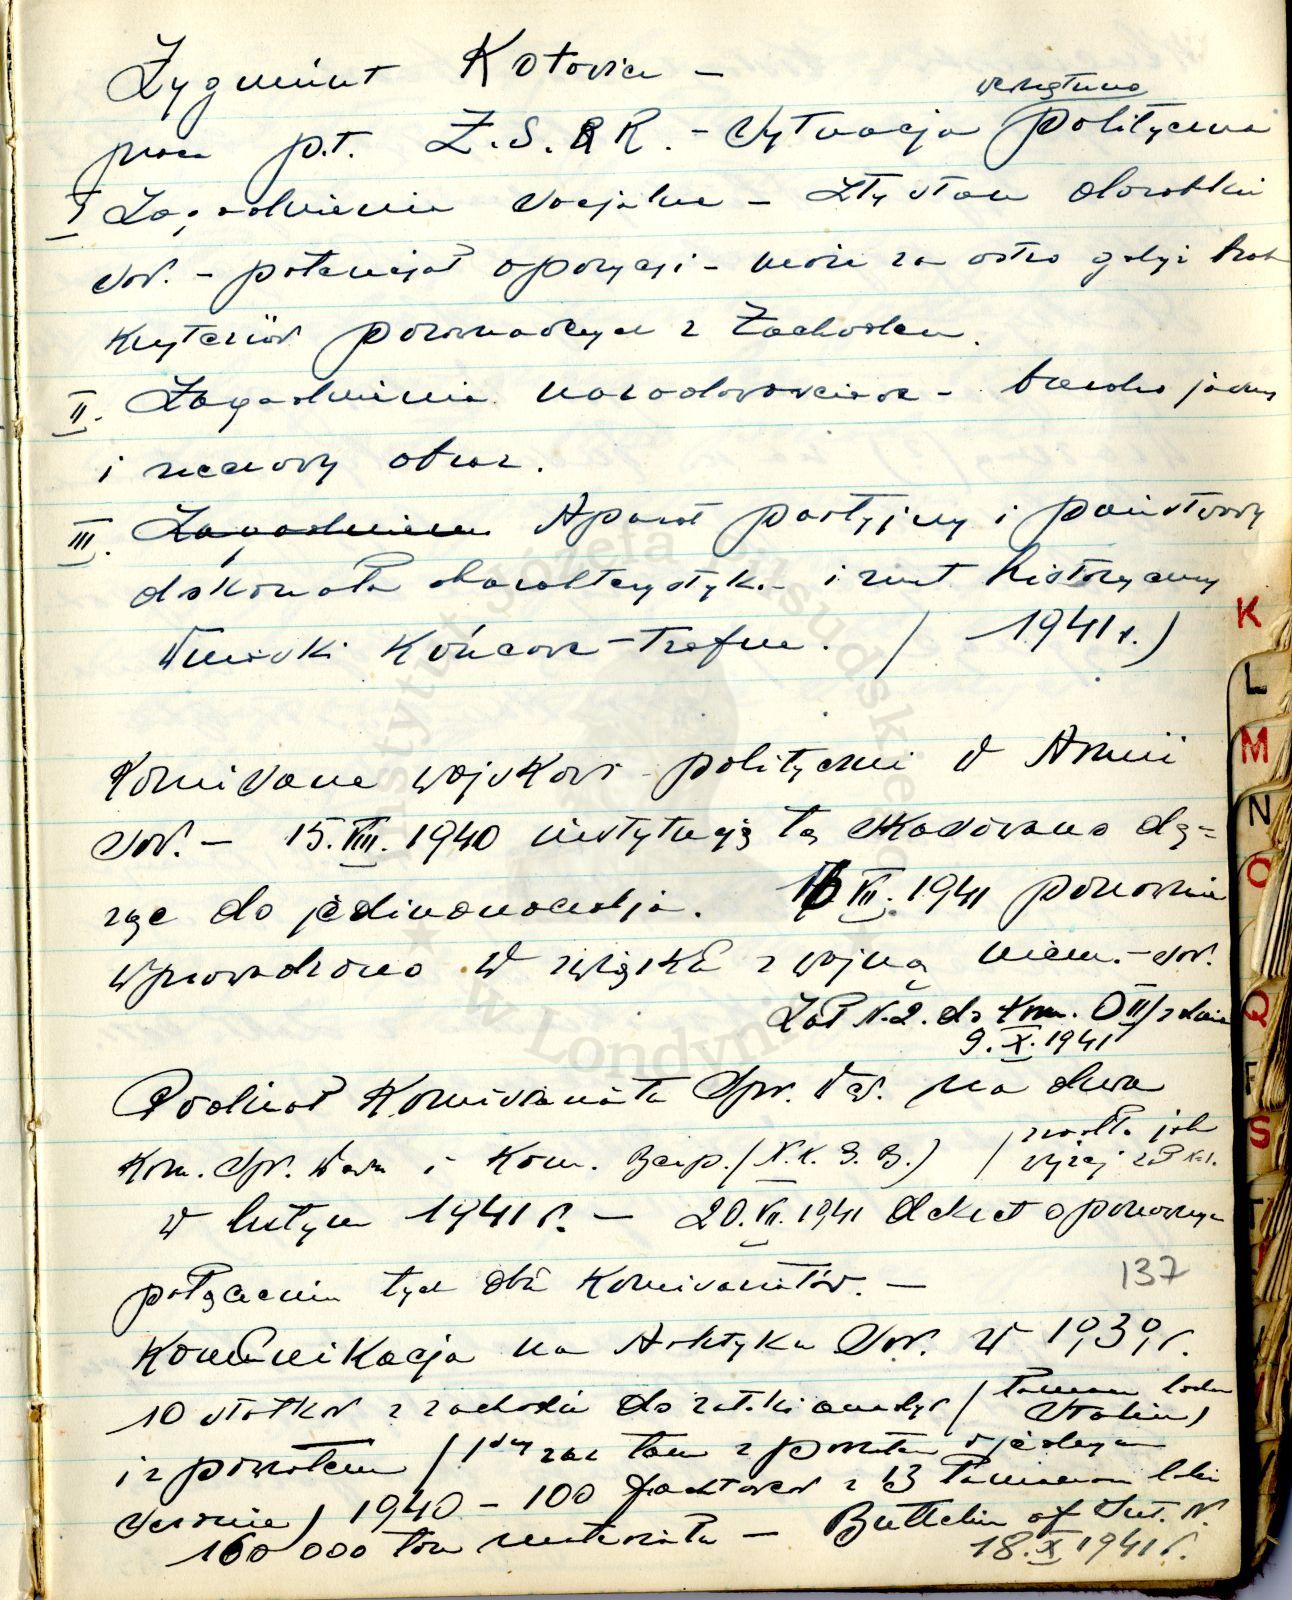 Zygmunt Kotowicz –
wewnętrzna
praca p.t. Z.S.R.R. – Sytuacja polityczna
I Zagadnienia socjalne – zły stan dorobku
sow. – potencjał opozycji – może za ostro gdyż brak
kryteriów porównawczych z Zachodem.
II. Zagadnienia narodowościowe – bardzo jasny
i rzeczowy obraz.
III. Zagadnienia Aparat partyjny i państwowy
doskonała charakterystyka i rzut historyczny
Wnioski końcowe – trafne. / 1941 r. )
Komisarze wojskowi – polityczni w Armii
sow. – 15.VIII.1940 instytucję tą skasowano dą=
żąc do jedinonaczalja. 16 VII. 1941 ponownie
wprowadzono w związku z wojną niem. – sow.
Zał N. 2. do Kom. O II / z dnia
9. X. 1941
Podział Komisariatu Spr. Wew. na dwa
Kom. Spr. Wewn i Kom. Bezp. / N.K.G.B. )
w lutym 1941 r. – 20.VII.1941 dekret o ponownym
połączeniu tych dwu Komisariatów. –
137
Komunikacja na Arktyku Sow. w 1939 r.
10 statków z zachodu do zatoki
Stalin )
i z powrotem / 1szy raz tam z powrotem w jednym
sezonie ) 1940 – 100 z 13
160 000 ton materiału – Bulletin of Int. N.
18. X 1941 r.
Instytut Józefa Piłsudskiego
w Londynie
K
L
M
N
O
Q
S
T